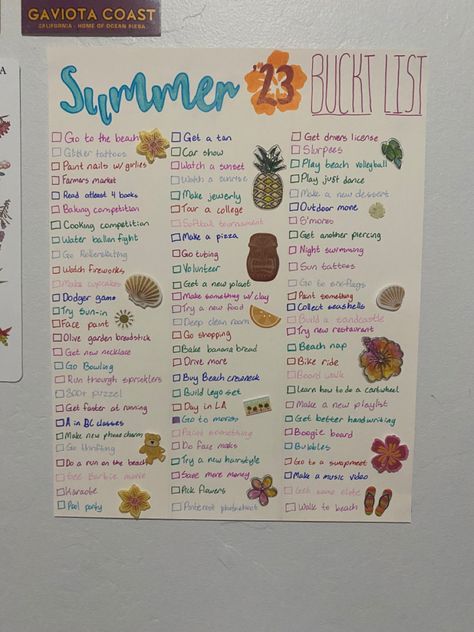 GAVIOTA COAST
Summer '23 BUCKT LIST
Go to the beach
Glitter tattoos
Paint nails w/ girlies
Farmers market
Read atleast 4 books
Baking competition
Cooking competition
Water ballon fight
Go Rollerskating
Watch fireworks
Make cupcakes
Dodger game
Try sun-in
Face paint
Olive garden breadstick
Get new necklace
Go Bowling
Run through sprinklers
300+ puzzel
Get faster at running
A in BC classes
Make new phone charm
Go thrifting
Do a run on the beach
See Barbie movie
Karaoke
Pool party
Get a tan
Car show
Watch a sunset
Watch a sunrise
Make jewerly
Tour a college
Softball tournament
Make a pizza
Go tubing
Volunteer
Get a new plant
Make something w/ clay
Try a new food
Deep clean room
Go shopping
Bake banana bread
Drive more
Buy Beach crewneck
Build lego set
Day in LA
Go to
Paint something
Do face masks
Try a new hairstyle
Save more money
Pick flowers
Pinterest photoshoot
Get drivers license
Slurpees
Play beach volleyball
Play just dance
Make a new dessert
Outdoor movie
S'mores
Get another piercing
Night swimming
Sun tattoos
Go to
Paint something
Collect seashells
Build a sandcastle
Try new restaurant
Beach nap
Bike ride
Board walk
Learn how to do a cartwheel
Make a new playlist
Get better handwriting
Boogie board
Bubbles
Go to a swapmeet
Make a music video
Get
Walk to beach